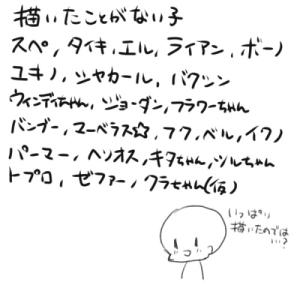 描いたことがない子
スペ, タイキ, エル, ライアン, ボーノ
ユキノ, シャカール, バクシン
ウィンディちゃん, ジョーダン, フラワーちゃん
バンブー, マーベラス☆, フク, ベル, イクノ
パーマー, ヘリオス, キタちゃん, シルちゃん
トプロ, ゼファー, クラちゃん(仮)
いっぱい
描いたのでは
…?